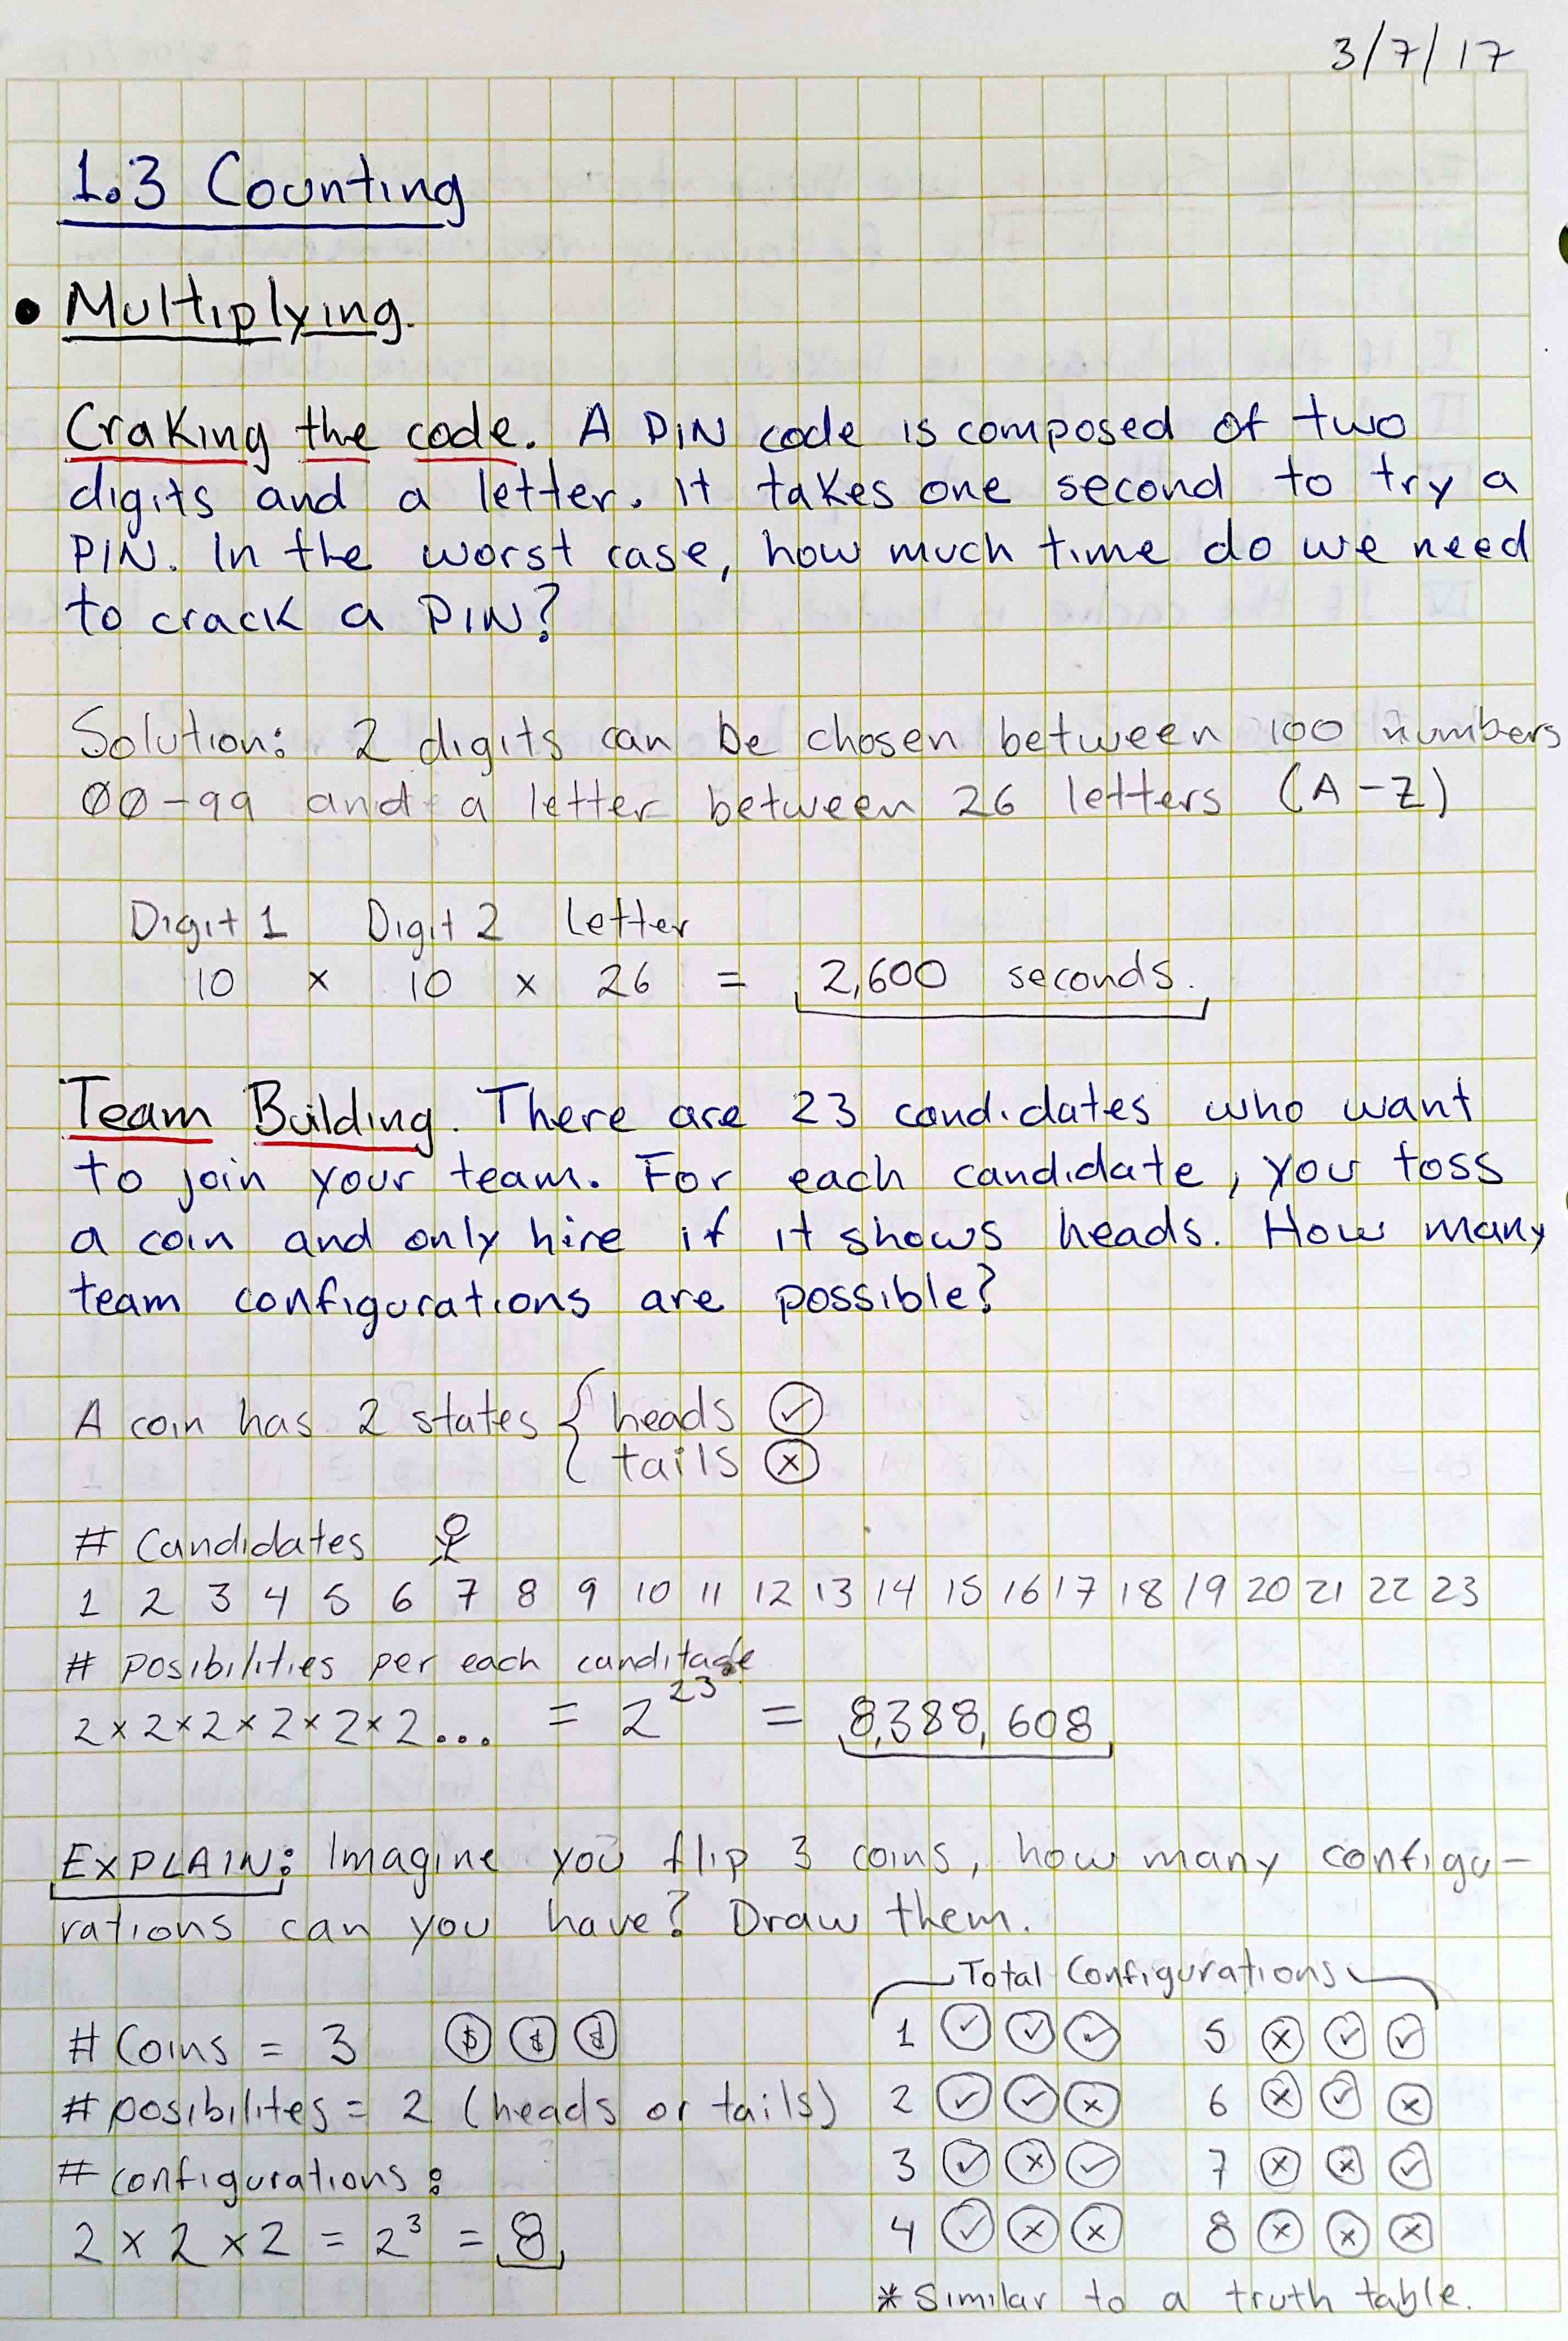 3/7/17
1.3 Counting
• Multiplying.
Craking the code. A PIN code is composed of two
digits and a letter. It takes one second to try a
PIN. In the worst case, how much time do we need
to crack a PIN?
Solution: 2 digits can be chosen between 100 numbers
00-99 and a letter between 26 letters (A-Z)
Digit 1 Digit 2 letter
10 × 10 × 26 = 2,600 seconds.
Team Building. There are 23 candidates who want
to join your team. For each candidate, you toss
a coin and only hire if it shows heads. How many
team configurations are possible?
A coin has 2 states { heads ✓
tails ×
# Candidates
1 2 3 4 5 6 7 8 9 10 11 12 13 14 15 16 17 18 19 20 21 22 23
# posibilities per each canditate
2×2×2×2×2×2... = 2^23 = 8,388,608
EXPLAIN: Imagine you flip 3 coins, how many configu-
rations can you have? Draw them.
Total Configurations
# Coins = 3 $ $ $
# posibilites = 2 (heads or tails)
# configurations:
2 × 2 × 2 = 2³ = 8
1 ✓ ✓ ✓ 5 × ✓ ✓
2 ✓ ✓ × 6 × ✓ ×
3 ✓ × ✓ 7 × × ✓
4 ✓ × × 8 × × ×
* Similar to a truth table.